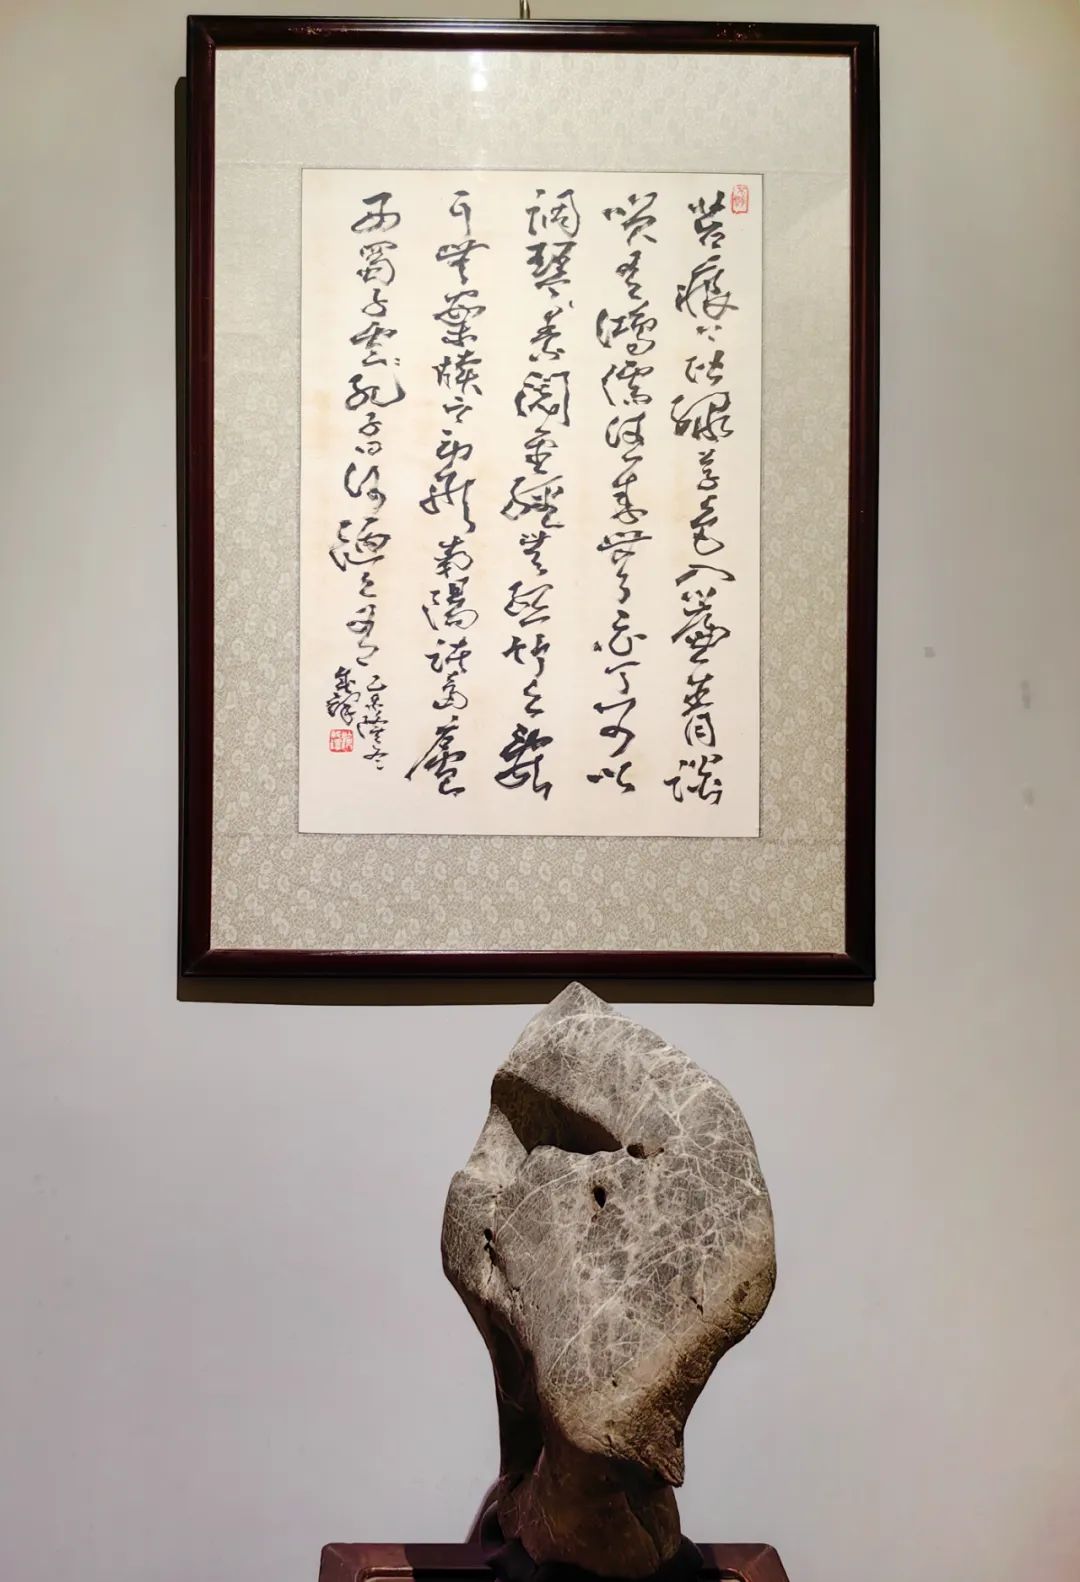 苔痕上阶绿草色入簾青談
笑有鴻儒往来無白丁可以
調琴素閲金經無絲竹之亂
耳無案牘之勞形南陽諸葛廬
西蜀子雲孔子曰何陋之有
乙未隆冬